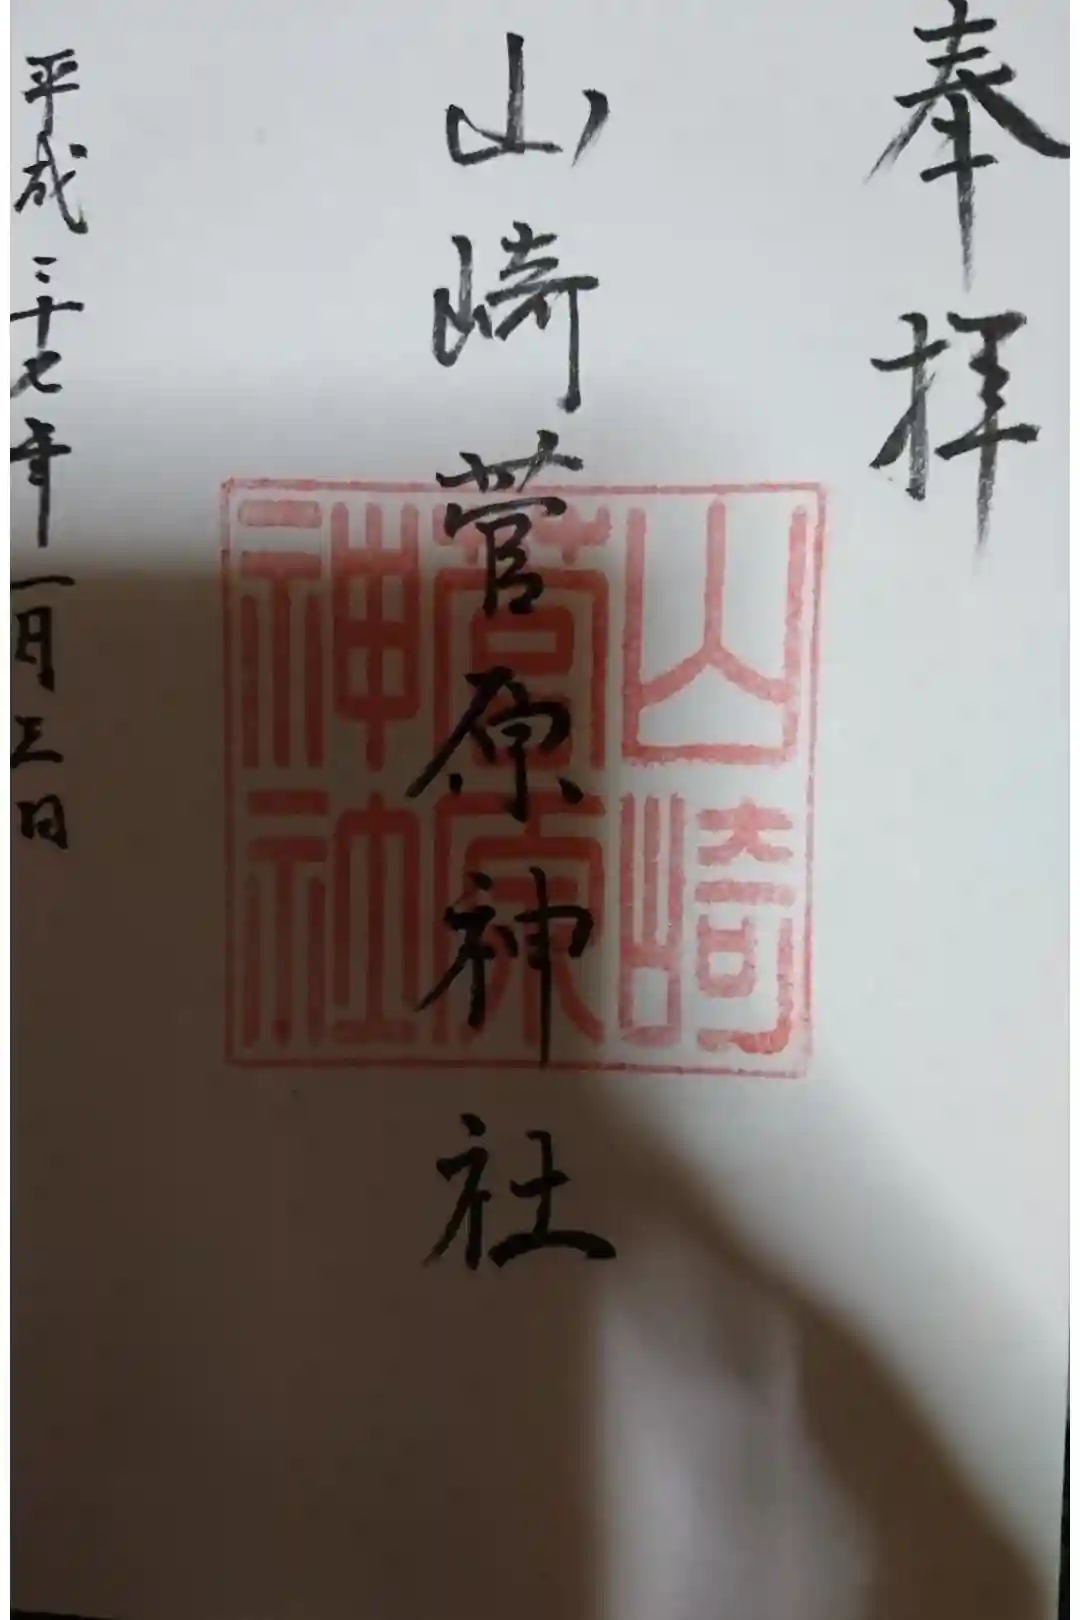 奉拝
山崎菅原神社
平成二十七年一月三日
山崎
菅原
神社